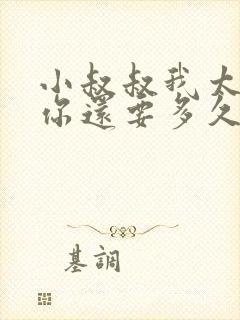 小叔叔我大
你還要多久
基調